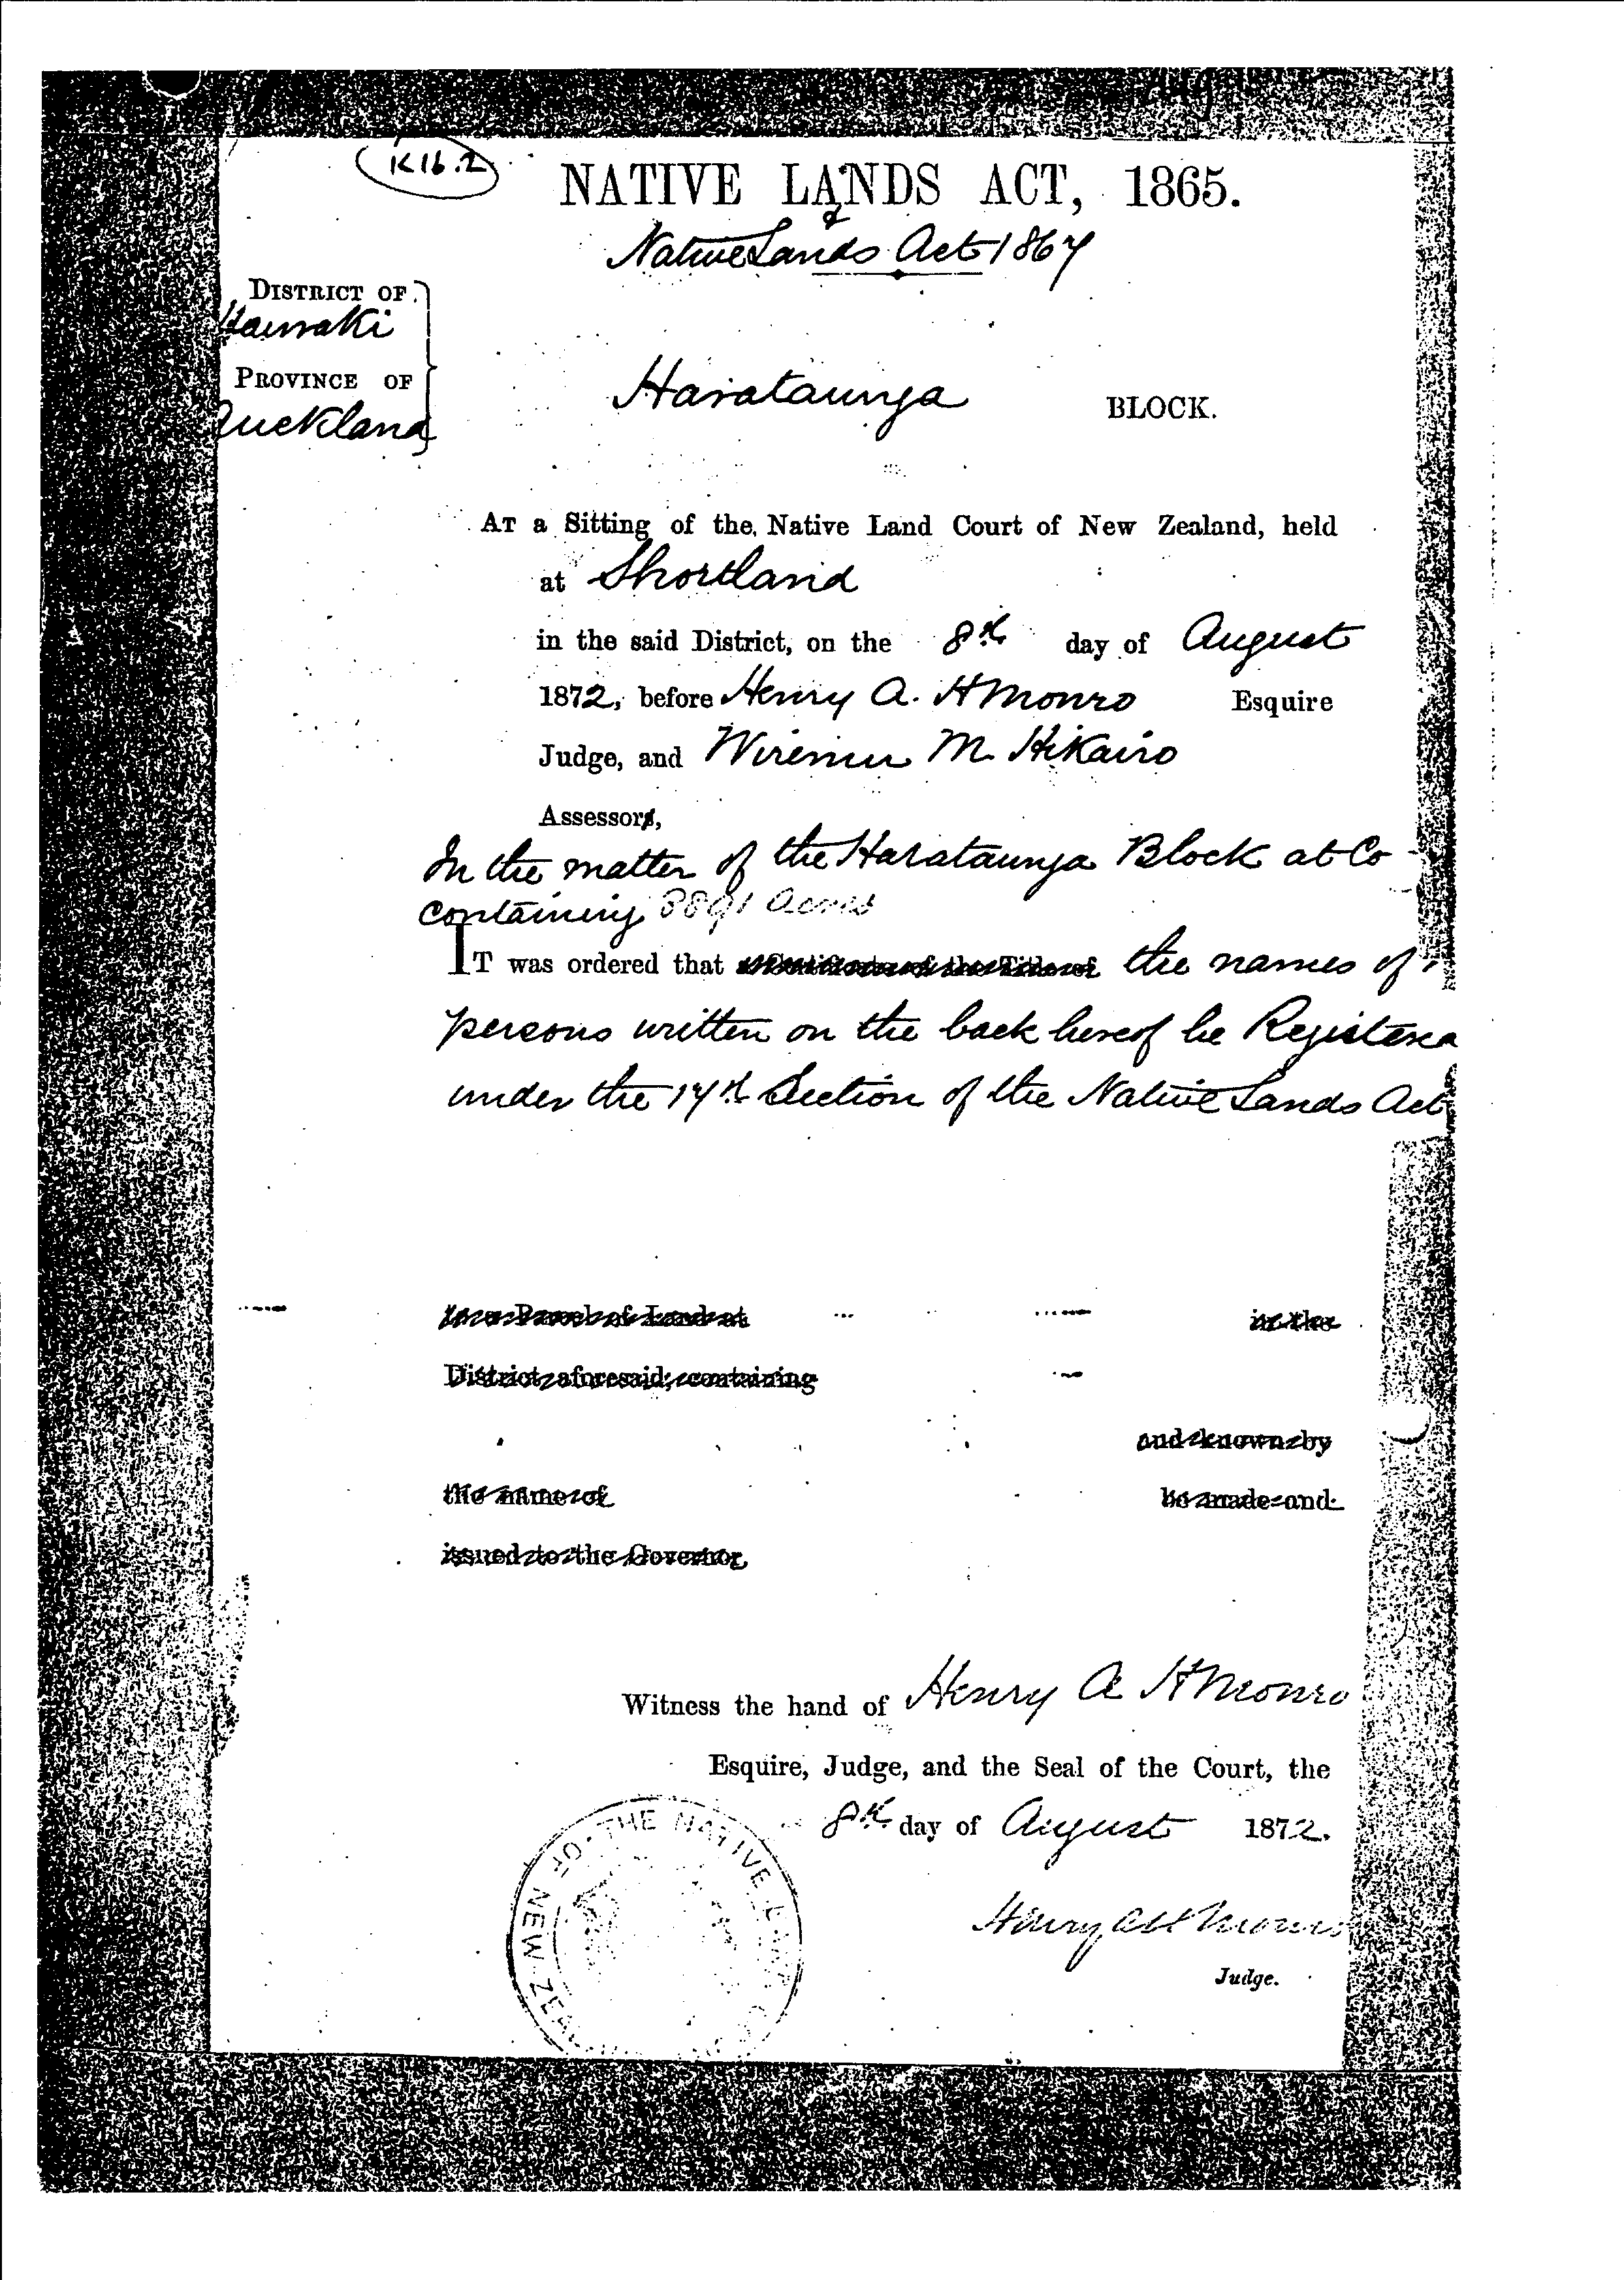 K16.2
NATIVE LANDS ACT, 1865.
&
Native Lands Act 1867
DISTRICT OF
Hauraki
PROVINCE OF
Auckland
Harataunga BLOCK.
AT a Sitting of the Native Land Court of New Zealand, held
at Shortland
in the said District, on the 8th day of August
1872, before Henry A. H Monro Esquire
Judge, and Wiremu M. Hikairo
Assessors,
In the matter of the Harataunga Block at Co
containing acres
IT was ordered that a Certificate of the Title of the names of
persons written on the back hereof be Registered
under the 17th Section of the Native Lands Act
to a Parcel of Land at in the
District aforesaid, containing
and known by
the name of be made and
issued to the Governor,
Witness the hand of Henry A H Monro
Esquire, Judge, and the Seal of the Court, the
8th day of August 1872.
Henry A H Monro
Judge.
OF THE NATIVE LAND
NEW ZEA